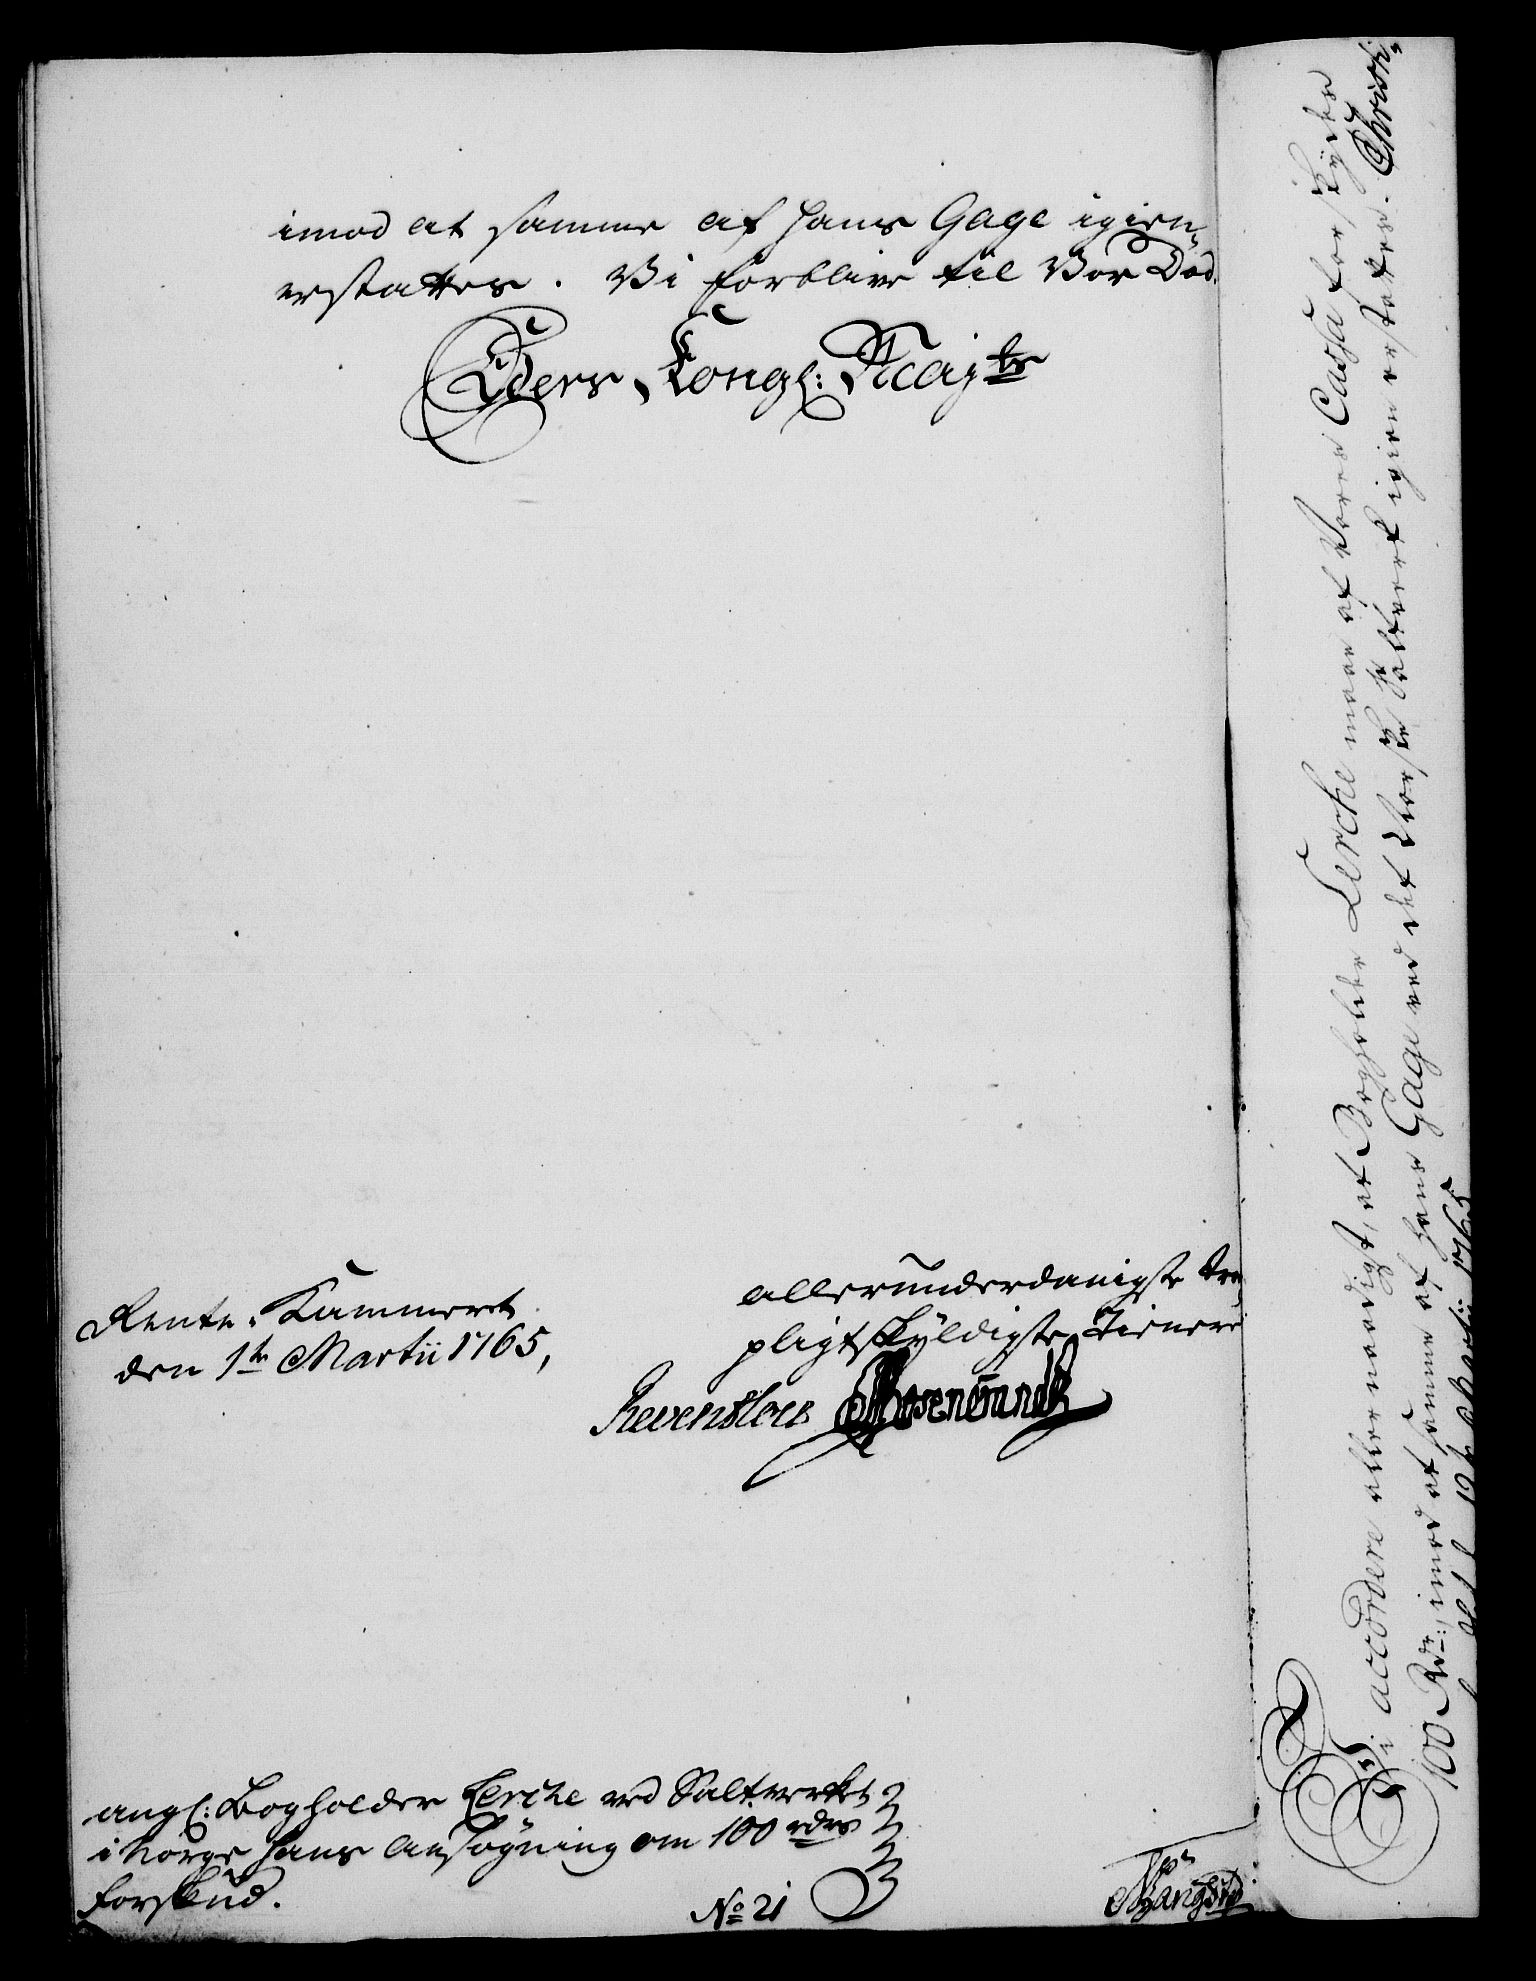 imod at samme af hans Gage igien,,
erstattes. Vi forblive til Vor Død.
Eders Kongl: Mayts
Rente-Kammeret
den 1te Martii 1765,
allerunderdanigste tro
pligtskyldigste Tienere
Reventlow Rosencrandtz
angl: Bogholder Lerche ved Saltverket
i Norge hans Ansøgning om 100 rdrs
Forskud.
No 21
Vi accordere allernaadigst, at Bogholder Lerche maae af Vores Cassa forskydes
100 Rdr:, imod at samme af hans Gage ved det Norske Saltverk igien erstattes. Christi-
12te Martii 1765